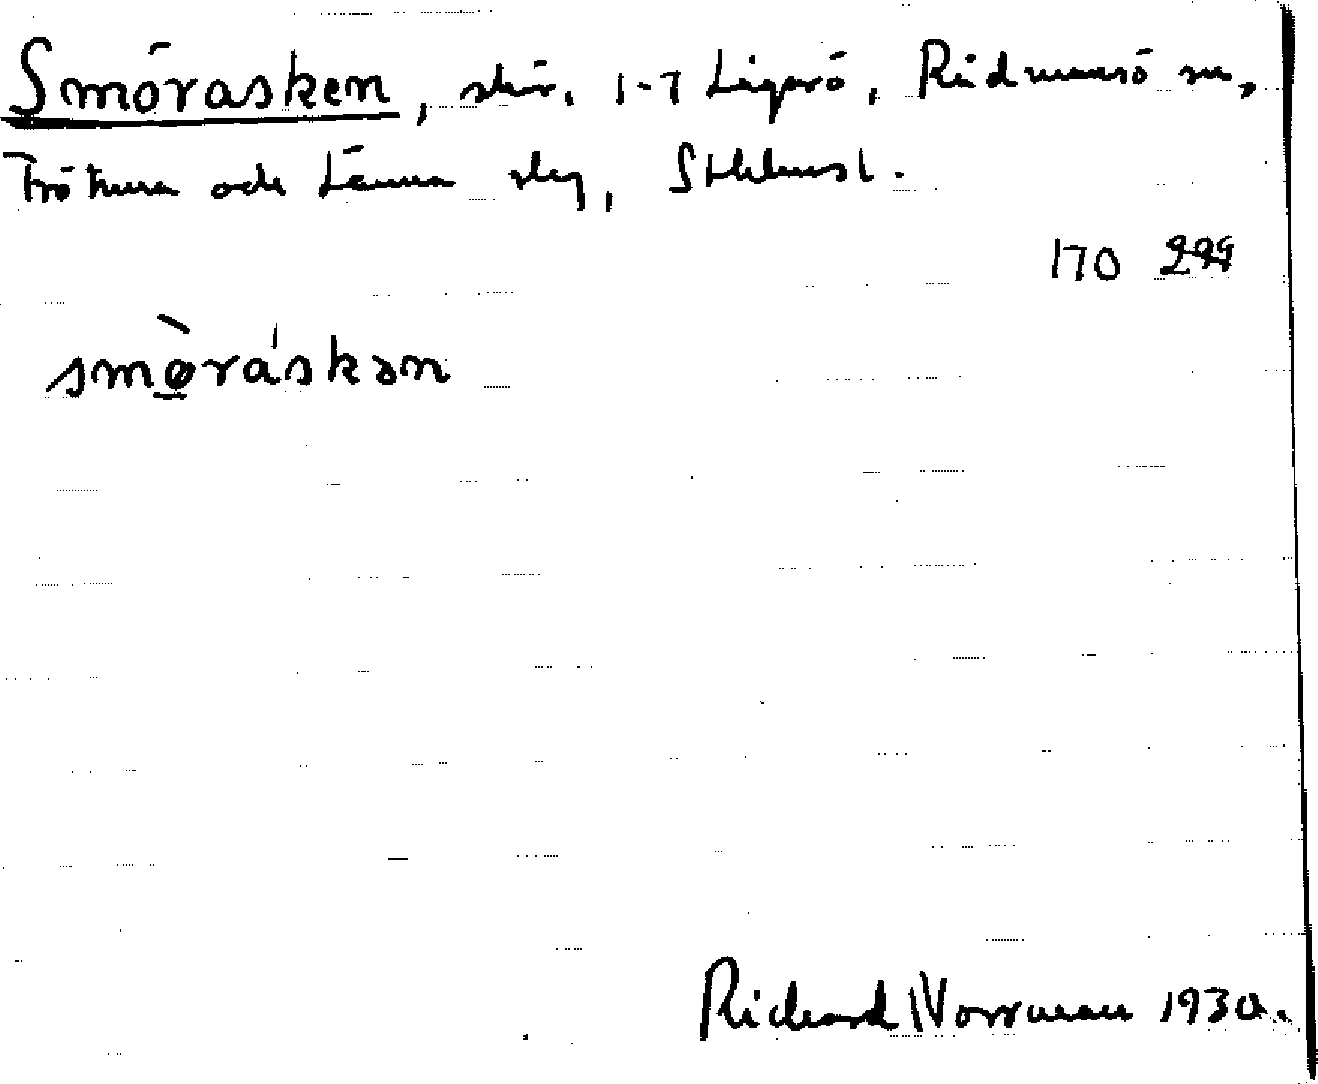 Smörasken, skär, 1-7 Ligarö, Rådmansö sn,
Frötuna och Länna slg, Sthlmsl.
170 299
smö̀ráskən
Richard Norrman 1930.